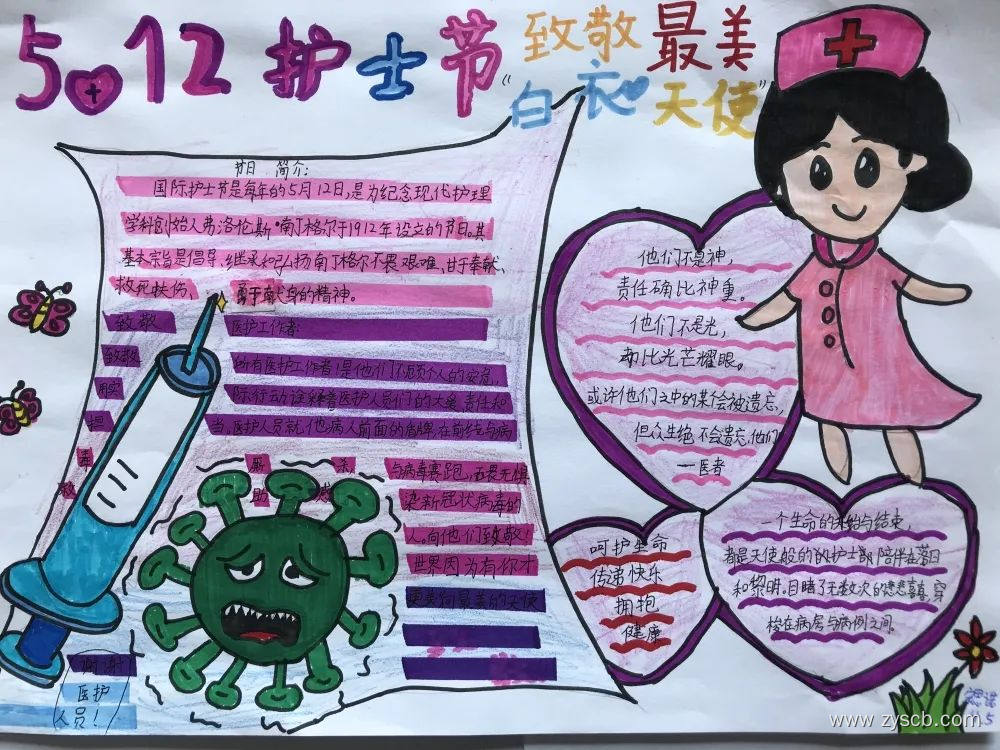 5.12 护士节
致敬最美
“白衣天使”
节日 简介:
国际护士节是每年的5月12日,是为纪念现代护理
学科创始人弗洛伦斯·南丁格尔于1912年设立的节日。其
基本宗旨是倡导、继承和弘扬南丁格尔不畏艰难、甘于奉献、
救死扶伤、勇于献身的精神。
致敬 医护工作者:
致敬 所有医护工作者!是他们不顾个人的安危,
用实 际行动诠释着医护人员们的大爱、责任和
担 当,医护人员就 他 病人前面的盾牌,在前线与病
毒
与病毒赛跑,无畏无惧
被 感
助
染新冠状病毒的
人。向他们致敬!
世界因为有你才
更美 向最美的天使
谢谢
医护
人员!
他们不是神,
责任确比神重。
他们不是光,
却比光芒耀眼。
或许他们之中的某个会被遗忘,
但众生绝不会遗忘,他们
一医者
呵护生命
传递快乐
拥抱
健康
一个生命的开始与结束,
都是天使般的 护士 陪伴在落日
和黎明。目睹了无数次的悲喜,穿
梭在病房与病例之间。
www.zyscb.com